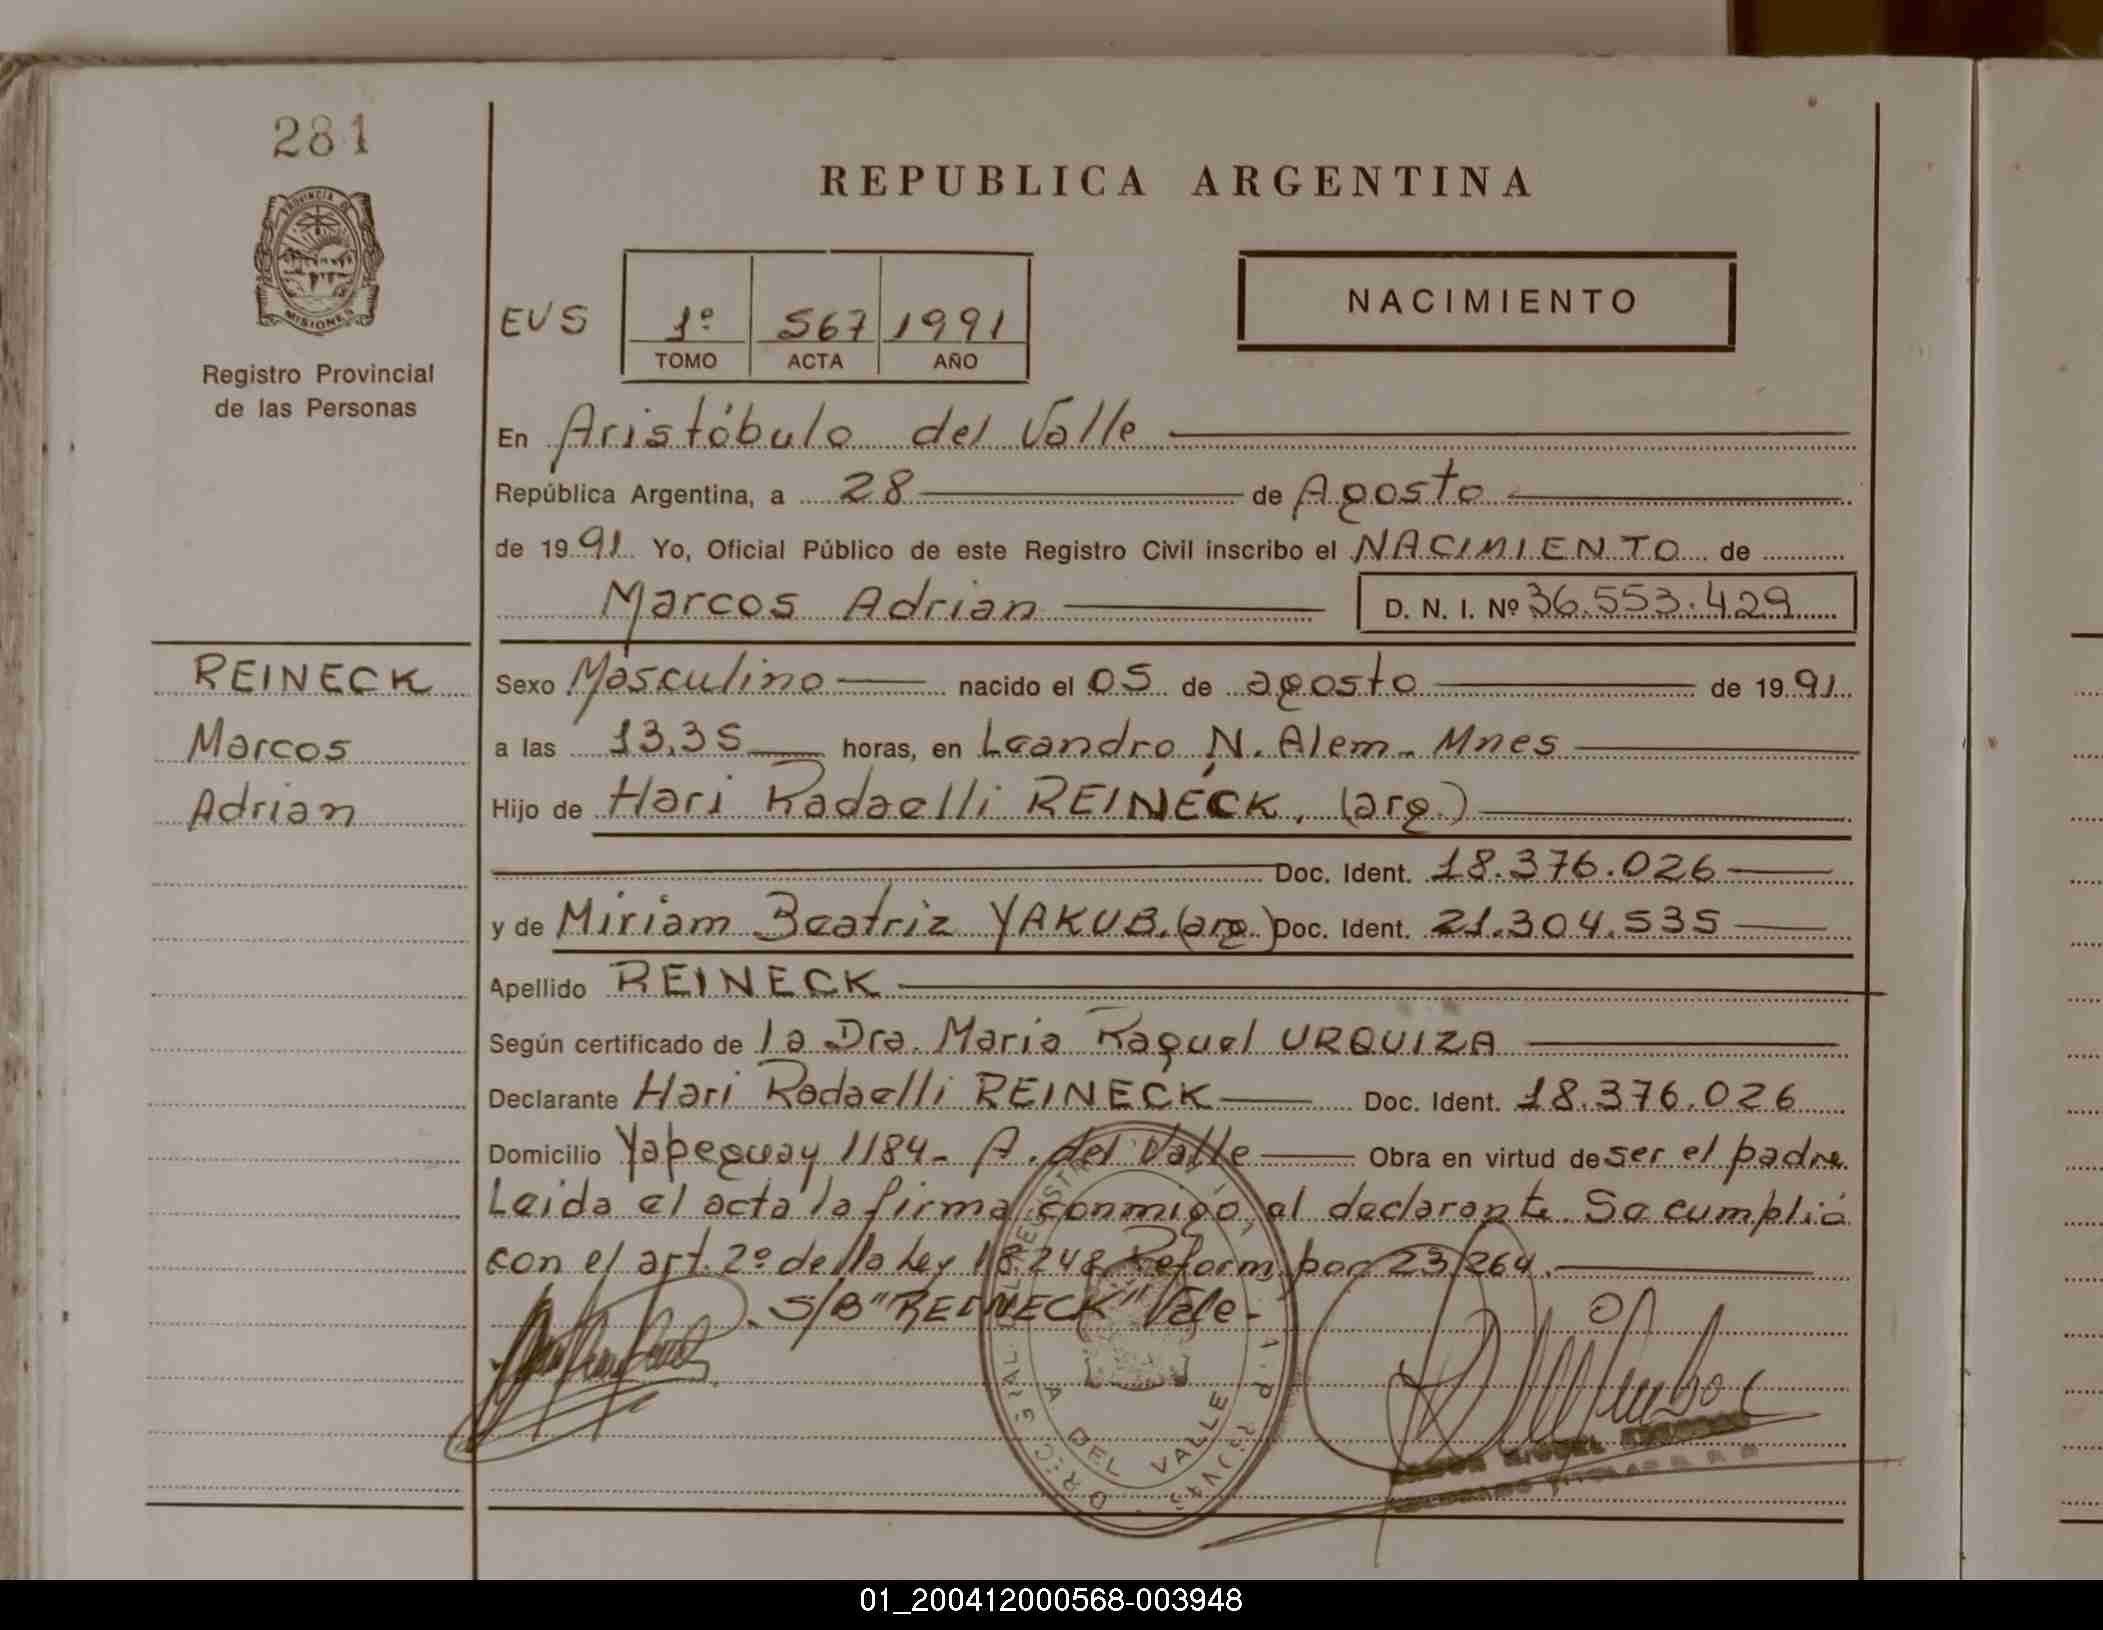 281
PROVINCIA DE
MISIONES
Registro Provincial
de las Personas
REPUBLICA ARGENTINA
NACIMIENTO
EVS 1º 567 1991
TOMO ACTA AÑO
En Aristóbulo del Valle
República Argentina, a 28 de Agosto
de 1991 Yo, Oficial Público de este Registro Civil inscribo el NACIMIENTO de
Marcos Adrian D. N. I. Nº 36.553.429
REINECK
Marcos
Adrian
Sexo Masculino nacido el 05 de agosto de 1991
a las 13,35 horas, en Leandro N. Alem - Mnes
Hijo de Hari Radaelli REINECK, (arg.)
Doc. Ident. 18.376.026
y de Miriam Beatriz YAKUB. (arg.) Doc. Ident. 21.304.535
Apellido REINECK
Según certificado de la Dra. Maria Raquel URQUIZA
Declarante Hari Radaelli REINECK Doc. Ident. 18.376.026
Domicilio Yapeguay 1184- A. del Valle Obra en virtud de ser el padre
Leida el acta la firma conmigo, el declarante. Se cumplió
con el art. 2º de la Ley 18248 Reform. por 23.264.
S/B "REINECK" Vale-
A DEL VALLE
01_200412000568-003948